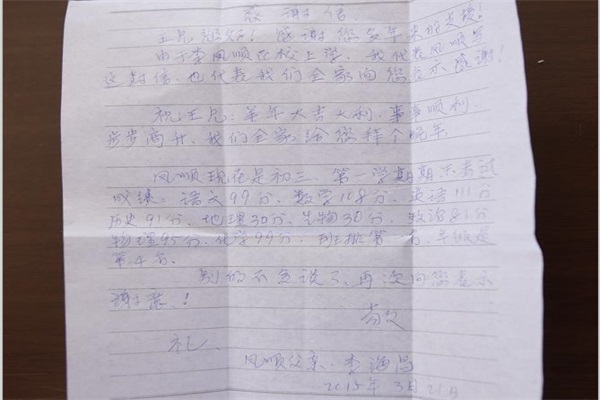 感谢信
王兄超铭！感谢您多年来的支援！
由于李凤顺在校上学，我代表凤顺写
这封信，也代表我们全家向您表示感谢！
祝王兄：羊年大吉大利，事事顺利，
步步高升，我们全家给您拜个晚年
凤顺现在是初三，第一学期期末考试
成绩：语文99分，数学118分，英语111分
历史91分，地理30分，生物30分，政治81分
物理95分，化学99分，班排第一名，年级是
第4名。
别的不多说了，再次向您表示
谢意！
礼
凤顺父亲：李海昌
2015年3月21日